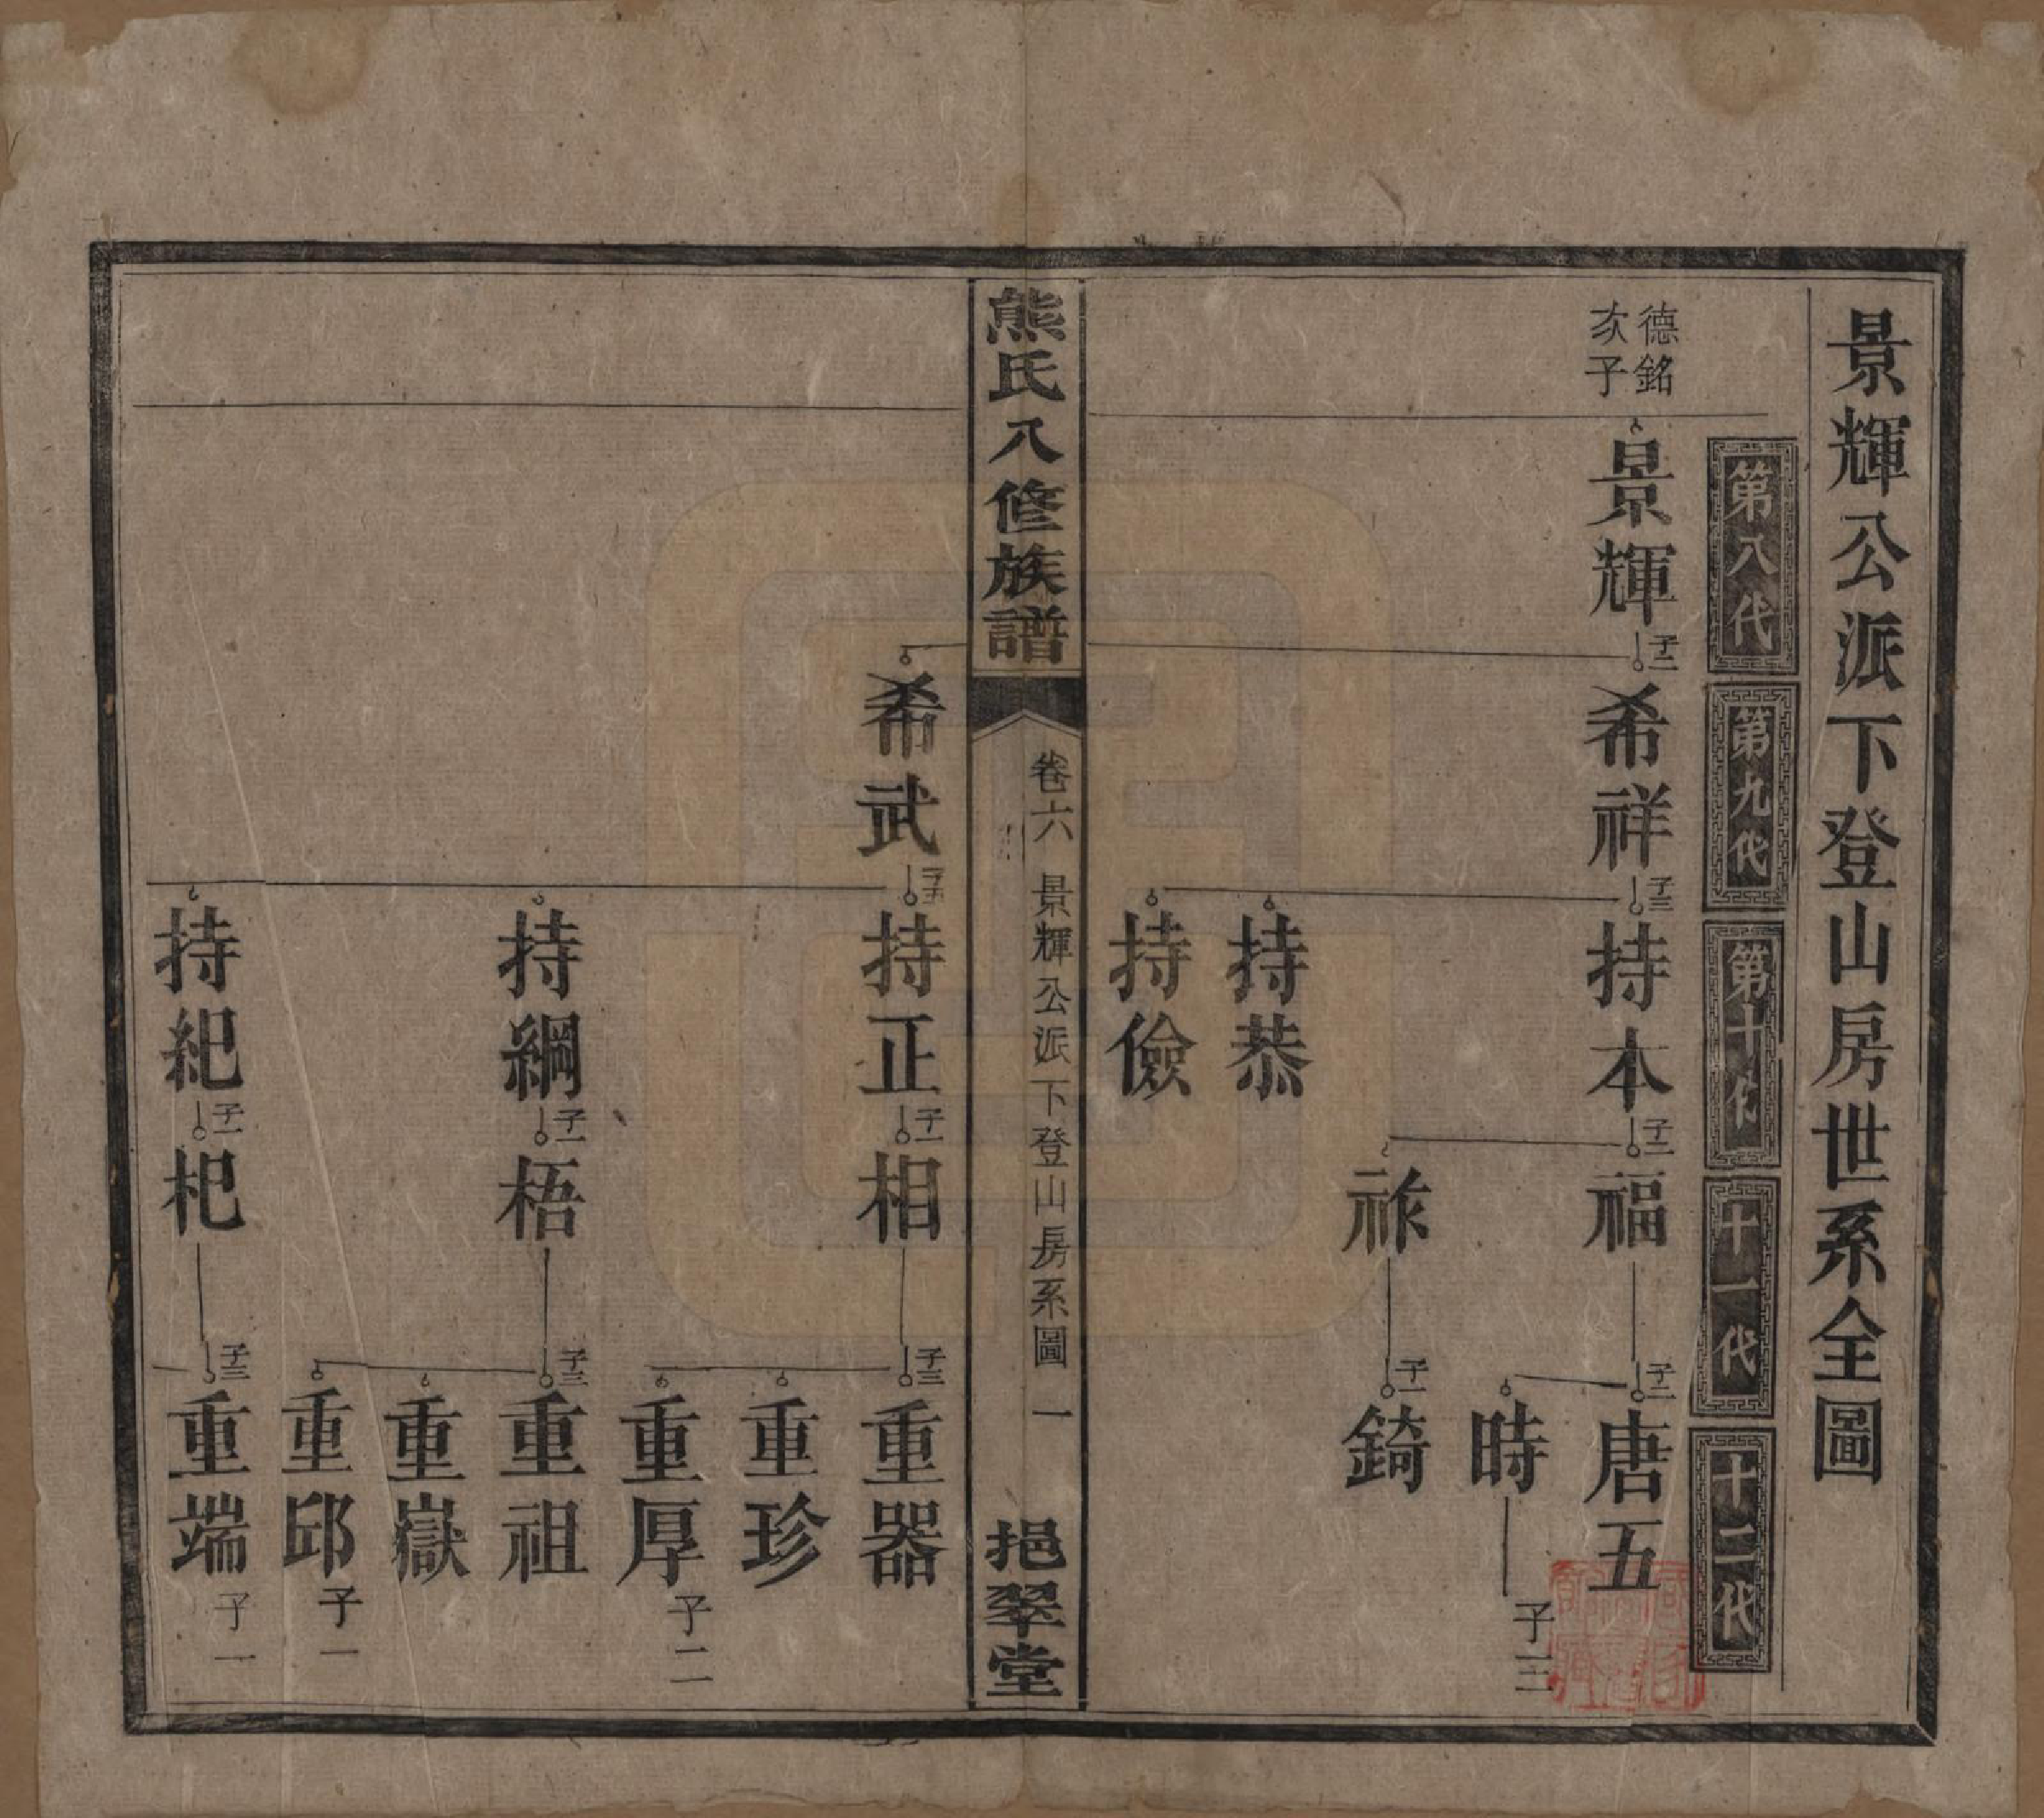 景輝公派下登山房世系全圖
第八代
第九代
第十代
十一代
十二代
德銘
次子
景輝
子二
希祥
子三
持本
子二
福
子二
唐五
時
子三
祚
子一
錡
持恭
持儉
熊氏八修族譜
卷六 景輝公派下登山房系圖 一
挹翠堂
希武
子五
持正
子一
相
子三
重器
重珍
重厚
子二
持綱
子一
梧
子三
重祖
重嶽
重邱
子一
持紀
子一
杞
子三
重端
子一